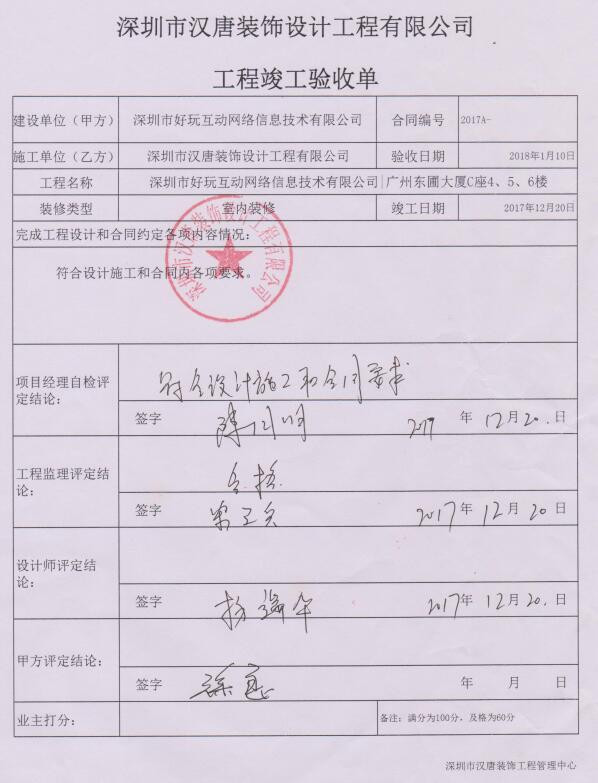 深圳市汉唐装饰设计工程有限公司
工程竣工验收单
建设单位（甲方） 深圳市好玩互动网络信息技术有限公司 合同编号 2017A-
施工单位（乙方） 深圳市汉唐装饰设计工程有限公司 验收日期 2018年1月10日
工程名称 深圳市好玩互动网络信息技术有限公司|广州东圃大厦C座4、5、6楼
装修类型 室内装修 竣工日期 2017年12月20日
完成工程设计和合同约定各项内容情况：
符合设计施工和合同内各项要求。
深圳市汉唐装饰设计工程有限公司
项目经理自检评定结论： 符合设计施工和合同要求
签字 2017 年 12月 20. 日
工程监理评定结论： 合格
签字 2017年 12月 20 日
设计师评定结论：
签字 2017年 12月 20. 日
甲方评定结论：
签字 年 月 日
业主打分： 备注：满分为100分，及格为60分
深圳市汉唐装饰工程管理中心